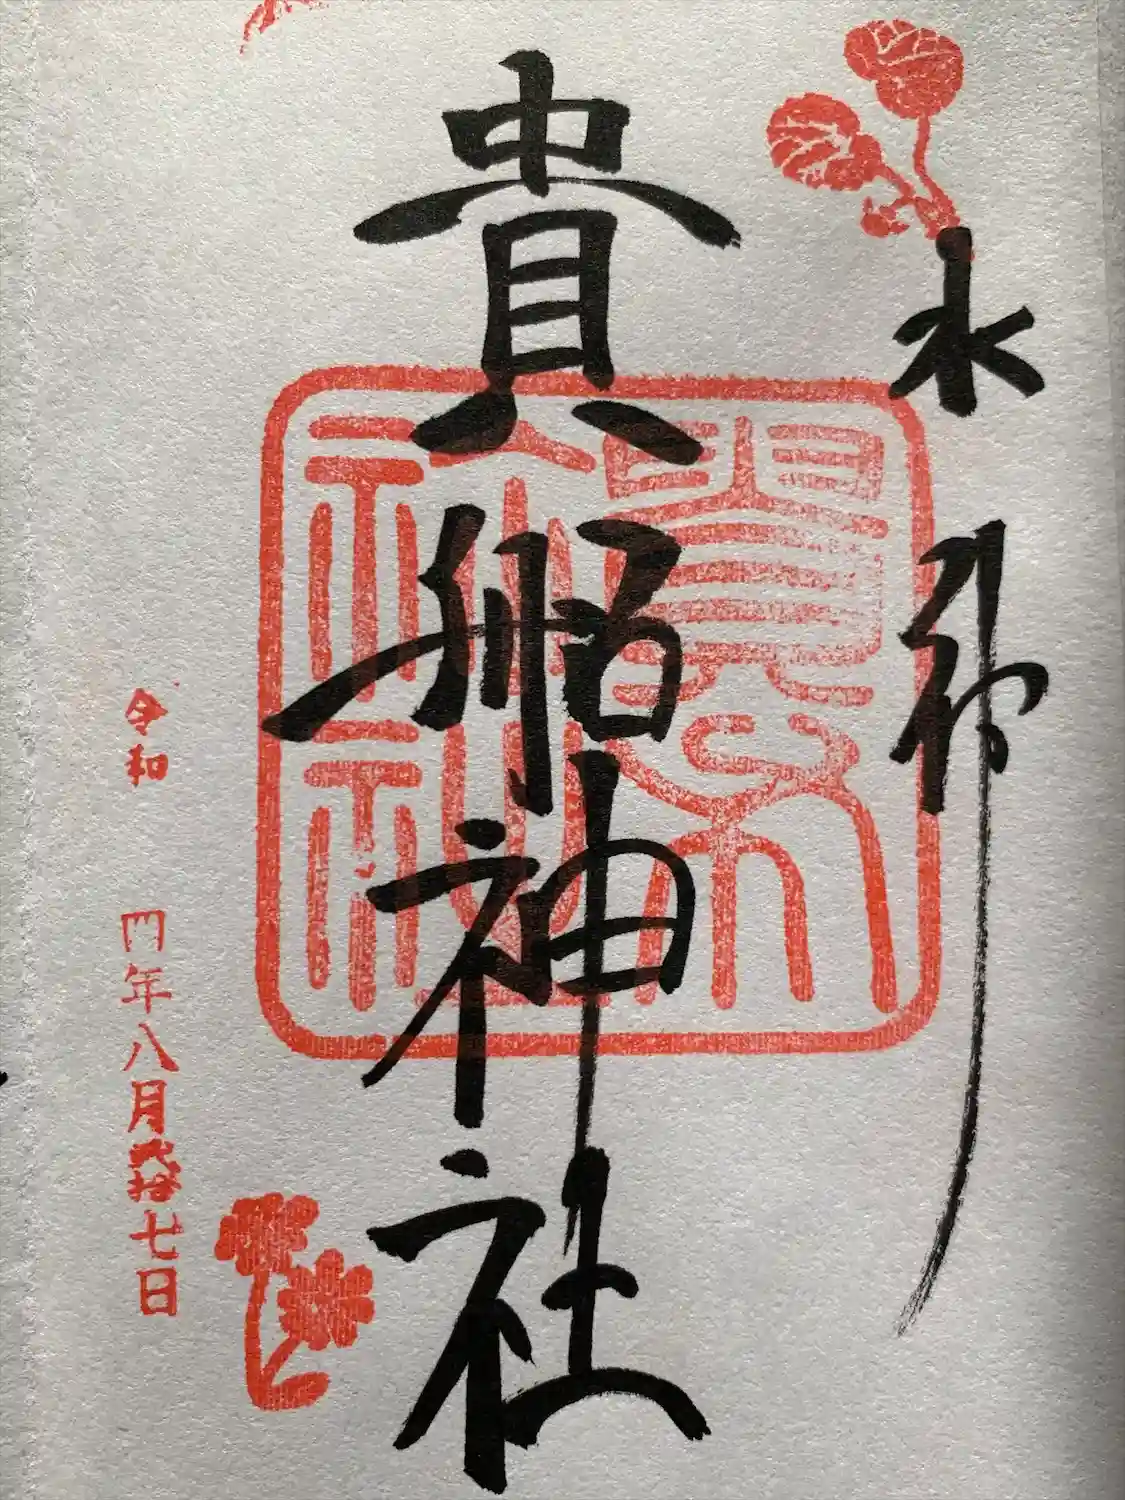 水神
貴船神社
令和四年八月弐拾七日